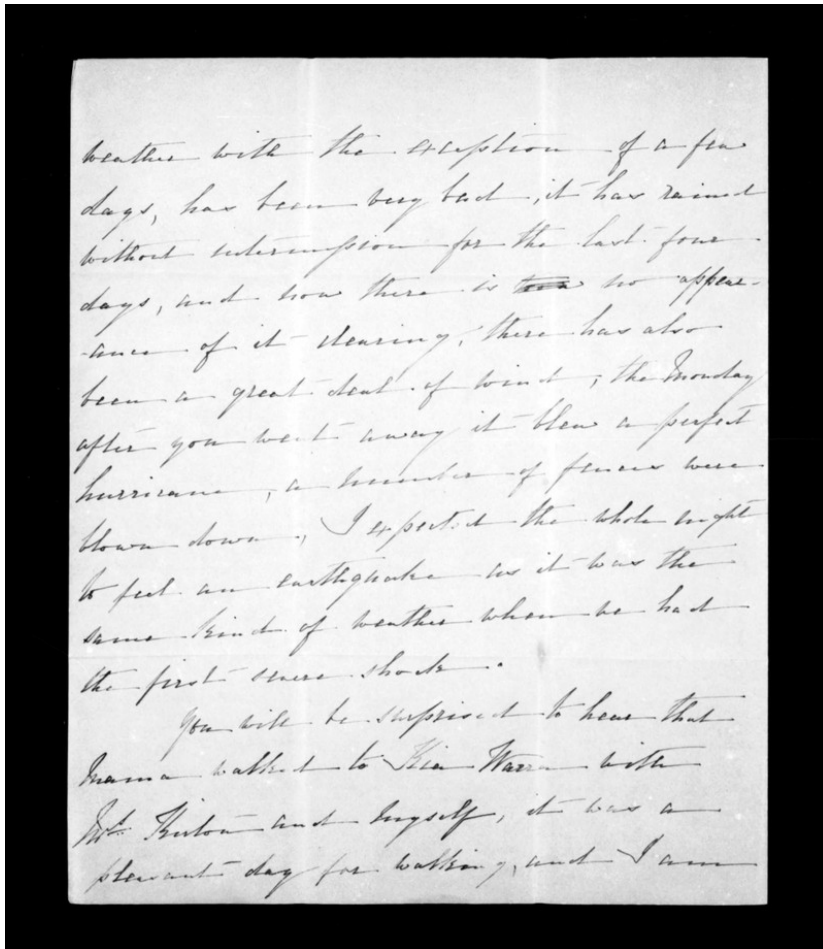 weather with the exception of a few
days, has been very bad, it has rained
without intermission for the last four
days, and now there is no appear-
-ance of it clearing, there has also
been a great deal of wind; the Monday
after you went away it blew a perfect
hurricane, a number of fences were
blown down, I expected the whole night
to feel an earthquake as it was the
same kind of weather when we had
the first severe shock.
You will be surprised to hear that
Mama walked to Kia Warra with
and myself, it was a
pleasant day for walking, and I am